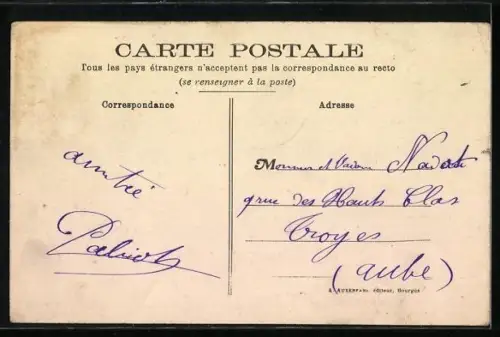 CARTE POSTALE
Tous les pays étrangers n'acceptent pas la correspondance au recto
(se renseigner à la poste)
Correspondance
Adresse
amitié
Monsieur et Madame
rue des Hauts Clos
Troyes
(Aube)
éditeur, Bourges